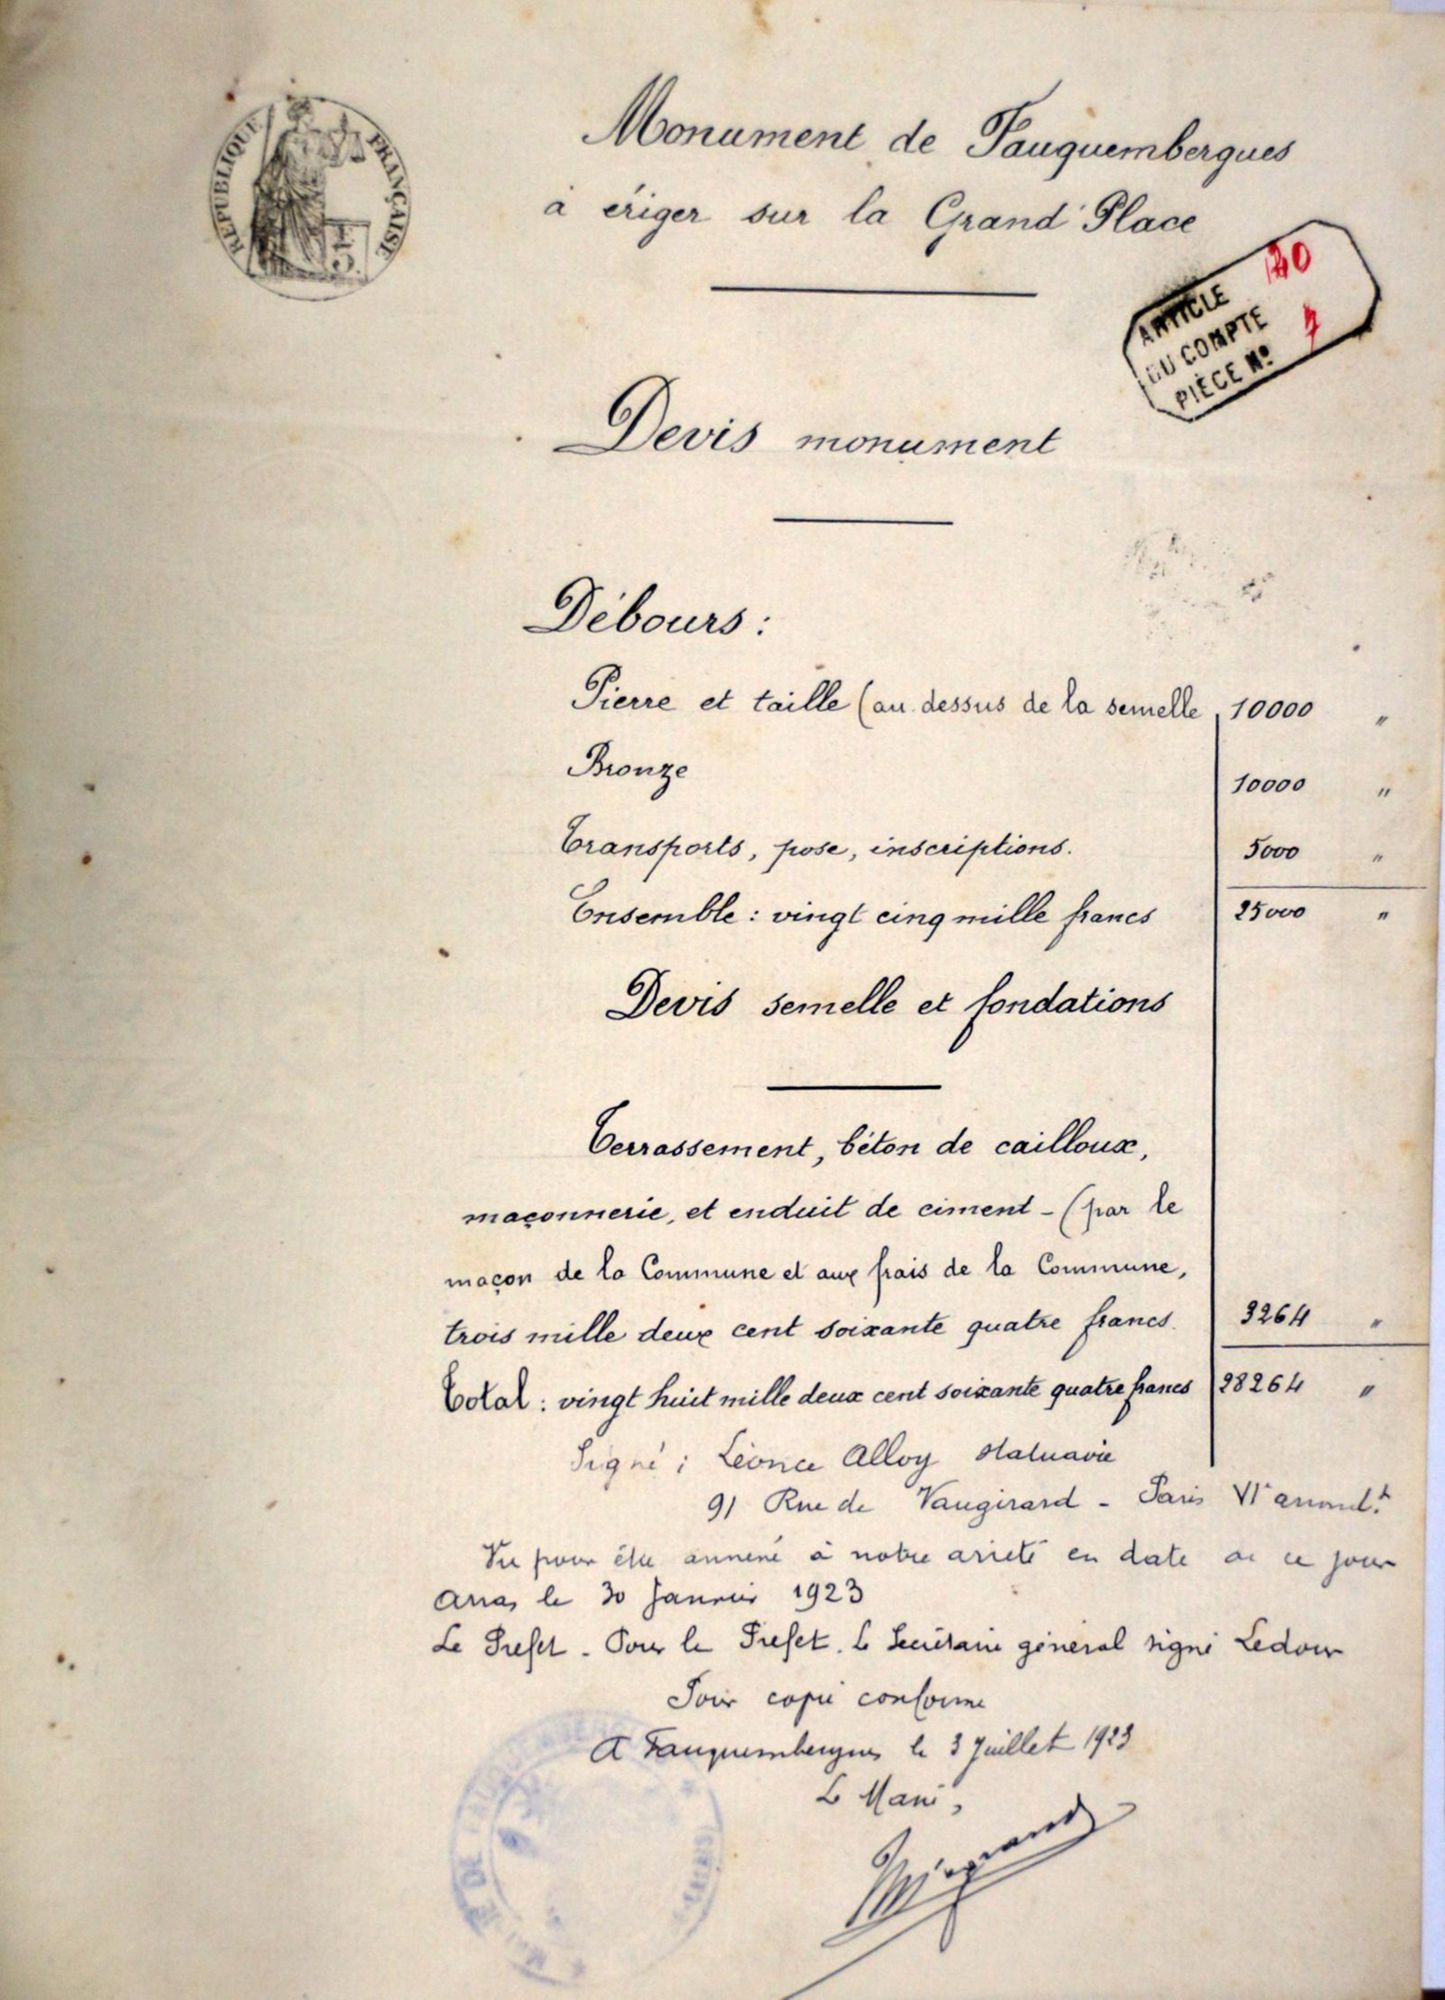 RÉPUBLIQUE FRANÇAISE
Monument de Fauquembergues
à ériger sur la Grand'Place
ARTICLE
DU COMPTE
PIÈCE No
Devis monument
Débours :
Pierre et taille (au dessus de la semelle 10000 "
Bronze 10000 "
Transports, pose, inscriptions. 5000 "
Ensemble : vingt cinq mille francs 25000 "
Devis semelle et fondations
Terrassement, béton de cailloux,
maçonnerie, et enduit de ciment - (par le
maçon de la Commune et aux frais de la Commune,
trois mille deux cent soixante quatre francs. 3264 "
Total : vingt huit mille deux cent soixante quatre francs 28264 "
Signé : Léonce Alloy statuaire
91 Rue de Vaugirard - Paris VIe arrondt.
Vu pour être annexé à notre arrêté en date de ce jour
Arras le 30 Janvier 1923
Le Préfet - Pour le Préfet. Le Secrétaire général signé Ledoux
Pour copie conforme
A Fauquembergues le 3 Juillet 1923
Le Maire,